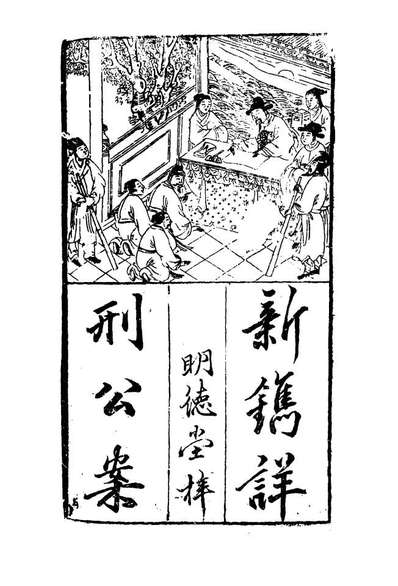 新鐫詳
明德堂梓
刑公案